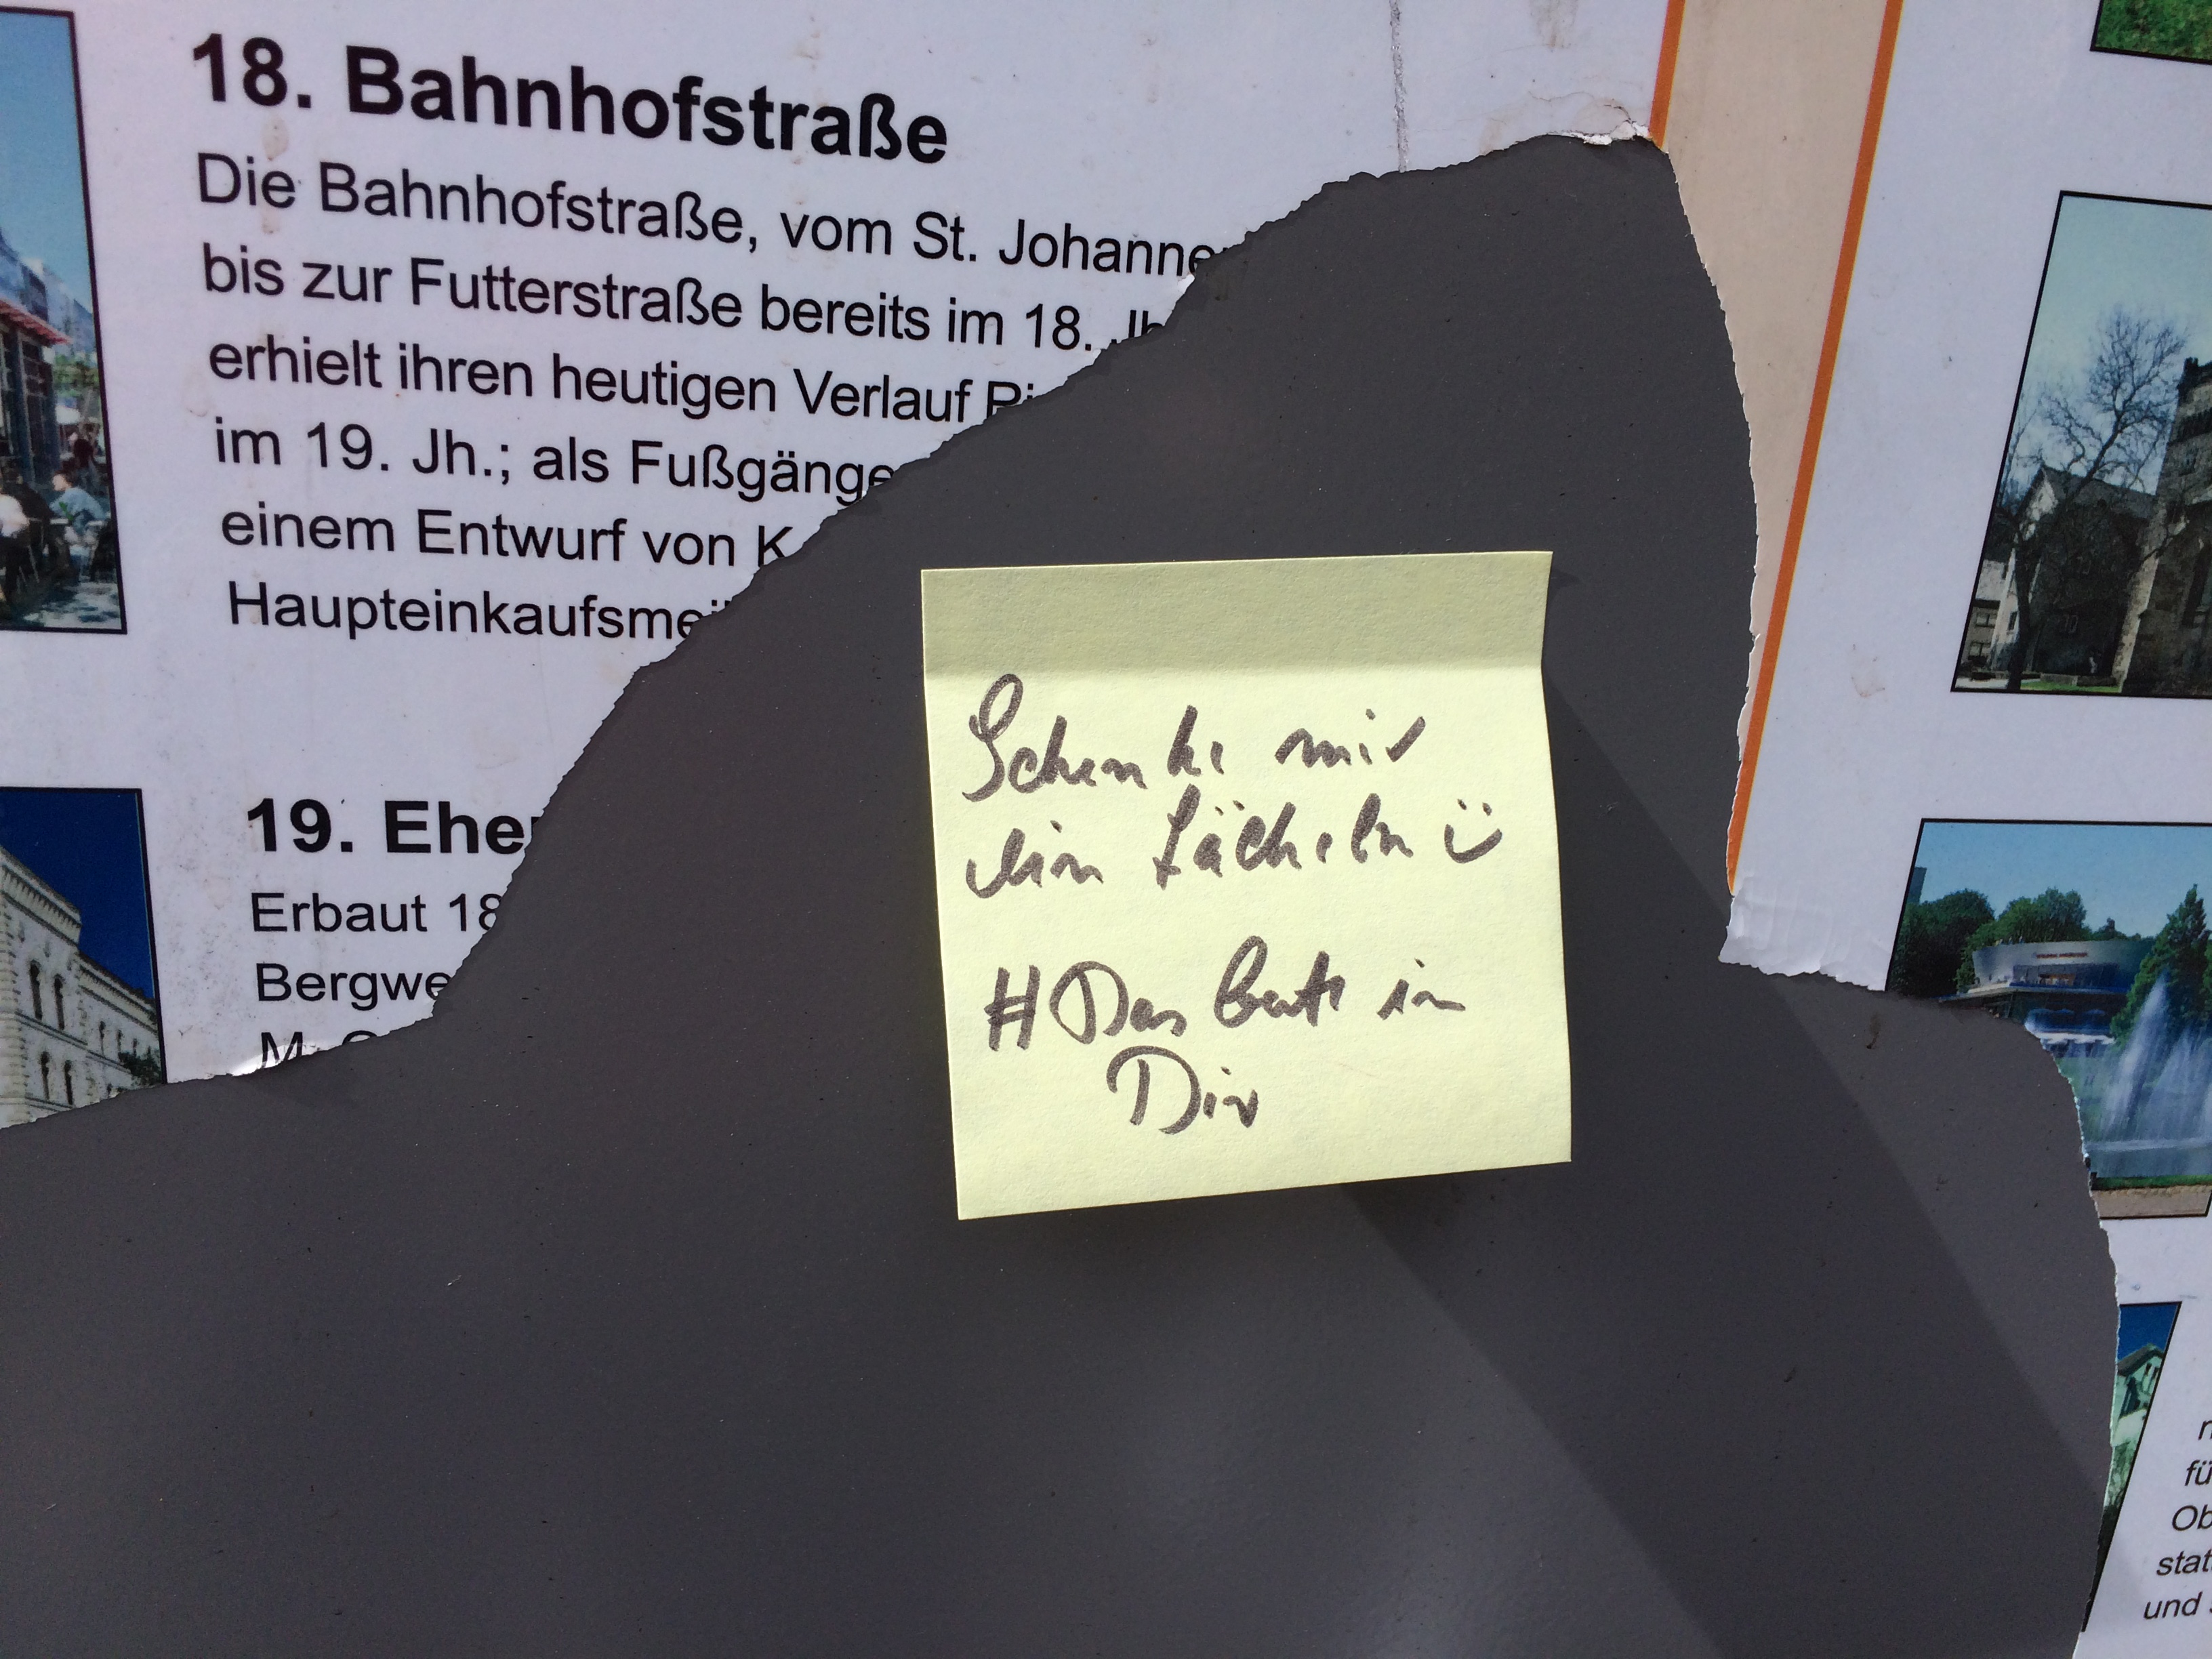 18. Bahnhofstraße
Die Bahnhofstraße, vom St. Johanne
bis zur Futterstraße bereits im 18. Jh
erhielt ihren heutigen Verlauf
im 19. Jh.; als Fußgänge
einem Entwurf von K
Haupteinkaufsmei
19. Ehe
Erbaut 18
Bergwe
Schenke mir
ein Lächeln ☺
#Das Gute in
Dir
fü
Ob
stat
und